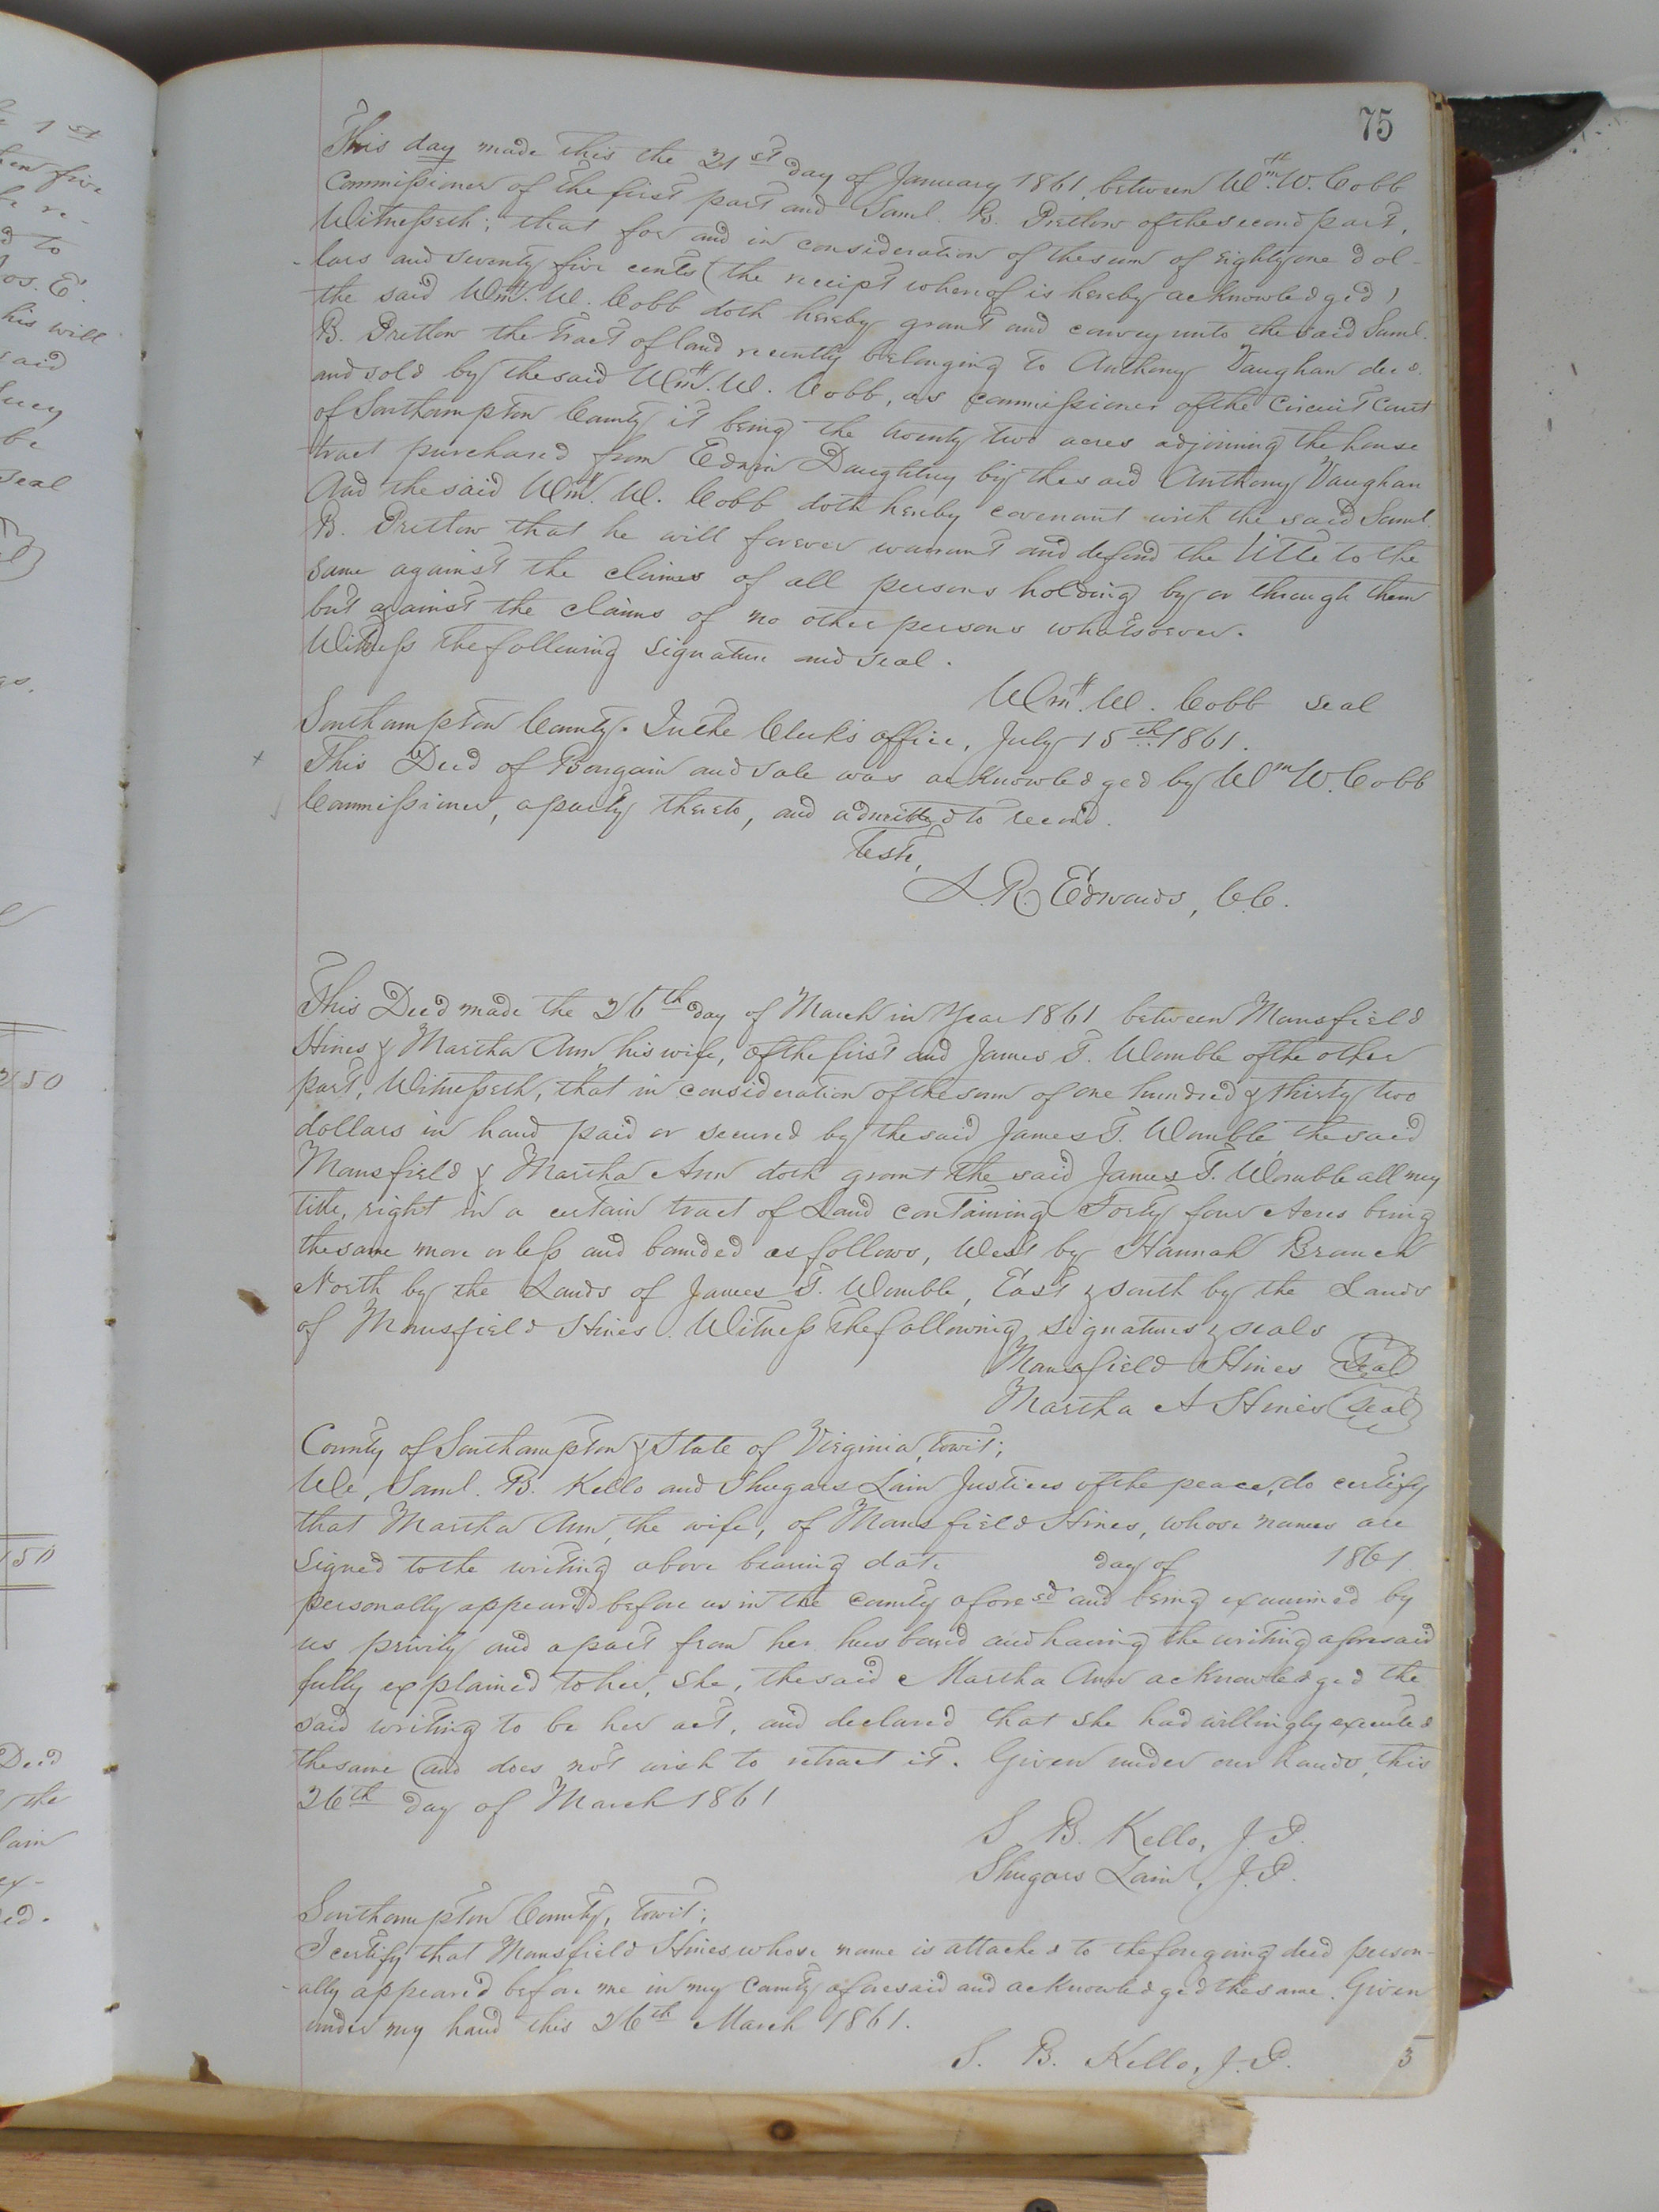 75
This day made this the 21st day of January 1861 between Wm. W. Cobb
Commissioner of the first part and Saml. B. Pretlow of the second part,
Witnesseth; that for and in consideration of the sum of eighty one dol-
-lars and seventy five cents (the receipt whereof is hereby acknowledged)
the said Wm. W. Cobb doth hereby grant and convey unto the said Saml.
B. Pretlow the tract of land recently belonging to Anthony Vaughan decd.
and sold by the said Wm. W. Cobb, as commissioner of the Circuit Court
of Southampton County it being the twenty two acres adjoining the house
tract purchased from Edwin Daughtrey by the said Anthony Vaughan
And the said Wm. W. Cobb doth hereby covenant with the said Saml.
B. Pretlow that he will forever warrant and defend the title to the
same against the claims of all persons holding by or through them
but against the claims of no other persons whatsoever.
Witness the following signature and seal.
Wm. W. Cobb seal
Southampton County. In the Clerk's office, July 15th 1861.
This Deed of Bargain and sale was acknowledged by Wm W. Cobb
Commissioner, a party thereto, and admitted to record.
Teste,
L. R. Edwards, C.C.
This Deed made the 26th day of March in Year 1861 between Mansfield
Hines & Martha Ann his wife, of the first and James T. Womble of the other
part, Witnesseth, that in consideration of the sum of one hundred & thirty two
dollars in hand paid or secured by the said James T. Womble, the said
Mansfield & Martha Ann doth grant the said James T. Womble all my
title, right in a certain tract of Land containing Forty four Acres being
the same more or less and bounded as follows, West by Hannah Branch
North by the Lands of James T. Womble, East & South by the Lands
of Mansfield Hines. Witness the following signatures & seals
Mansfield Hines Seal
Martha A Hines Seal
County of Southampton & State of Virginia, towit;
We, Saml. B. Kello and Shugars Lain Justices of the peace, do certify
that Martha Ann, the wife, of Mansfield Hines, whose names are
signed to the writing above bearing date day of 1861.
personally appeared before us in the county aforesd and being examined by
us privily and apart from her husband and having the writing aforesaid
fully explained to her, she, the said Martha Ann acknowledged the
said writing to be her act, and declared that she had willingly executed
the same and does not wish to retract it. Given under our hands, this
26th day of March 1861
S. B. Kello, J.P.
Shugars Lain, J.P.
Southampton County, towit;
I certify that Mansfield Hines whose name is attached to the foregoing deed person-
-ally appeared before me in my County aforesaid and acknowledged the same. Given
under my hand this 26th March 1861.
S. B. Kello, J.P.
3